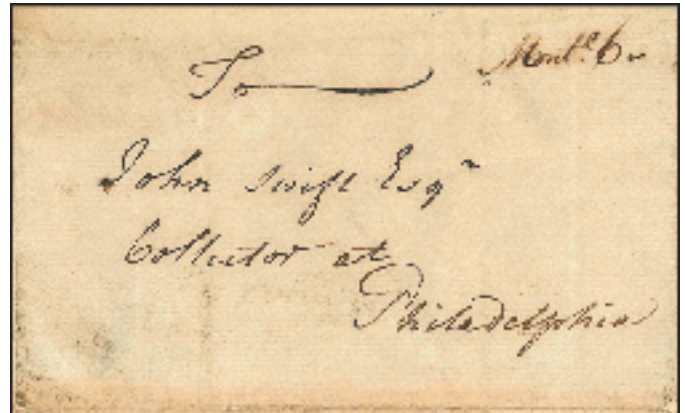 To
Montl. 6
John Swift Esqr
Collector at
Philadelphia